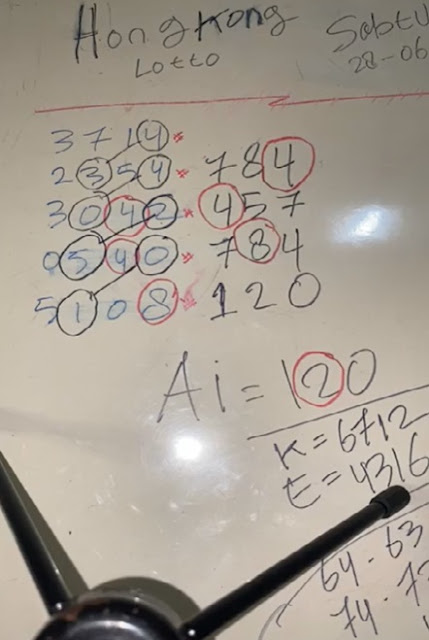 HongKong
Lotto
Sabtu
28-06
3714
2354 * 784
3042 * 457
0540 * 784
5108 * 120
Ai = 120
K = 6712
E = 4316
64 - 63
74 - 7